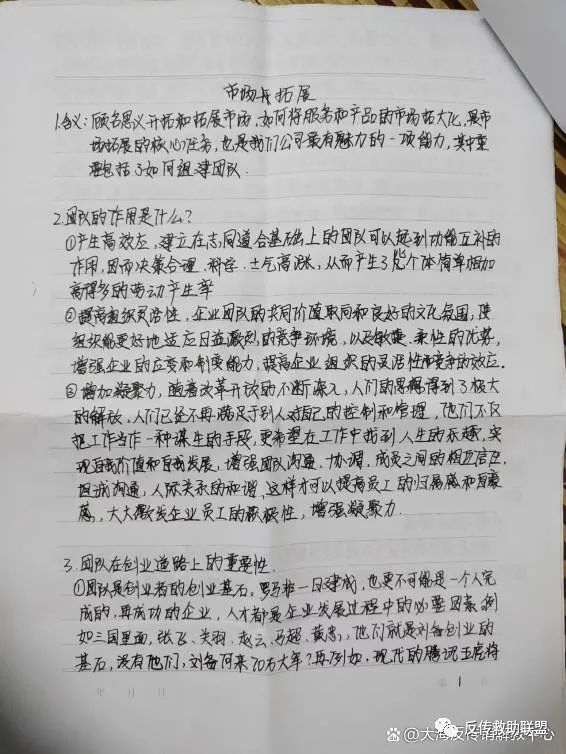 市场与拓展
1.含义:顾名思义开拓和拓展市场,如何将服务和产品的市场拓大化,是市
场拓展的核心任务,也是我们公司最有魅力的一项能力,其中重
要包括了如何组建团队.
2.团队的作用是什么?
①产生高效应,建立在志同道合基础上的团队可以起到功能互补的
作用,因而决策合理、科学、士气高涨,从而产生了比个体简单相加
高得多的劳动产生率
②提高组织灵活性,企业团队的共同价值取向和良好的文化氛围,使
组织能更好地适应日益激烈的竞争环境,以及敏捷、柔性的优势,
增强企业的应变和制变能力,提高企业组织的灵活性和竞争的效应.
③增加凝聚力,随着改革开放的不断深入,人们的思想得到了极大
的解放,人们已经不再满足于别人对自己的控制和管理,他们不仅
把工作当作一种谋生的手段,更希望在工作中找到人生的乐趣,实
现自我价值和自我发展,增强团队沟通、协调,成员之间的相互信任.
坦诚沟通,人际关系的和谐,这样才可以提高员工的归属感和自豪
感,大大激发企业员工的积极性,增强凝聚力.
3.团队在创业道路上的重要性.
①团队是创业者的创业基石。罗马非一日建成,也更不可能是一个人完
成的,再成功的企业,人才都是企业发展过程中的必要因素.例
如三国里面,张飞、关羽、赵云、马超、黄忠,他们就是刘备创业的
基石,没有他们,刘备何来70万大军?再例如,现代的腾讯五虎将
年 月 日
第 1 页
大海反传销解救中心
反传救助联盟